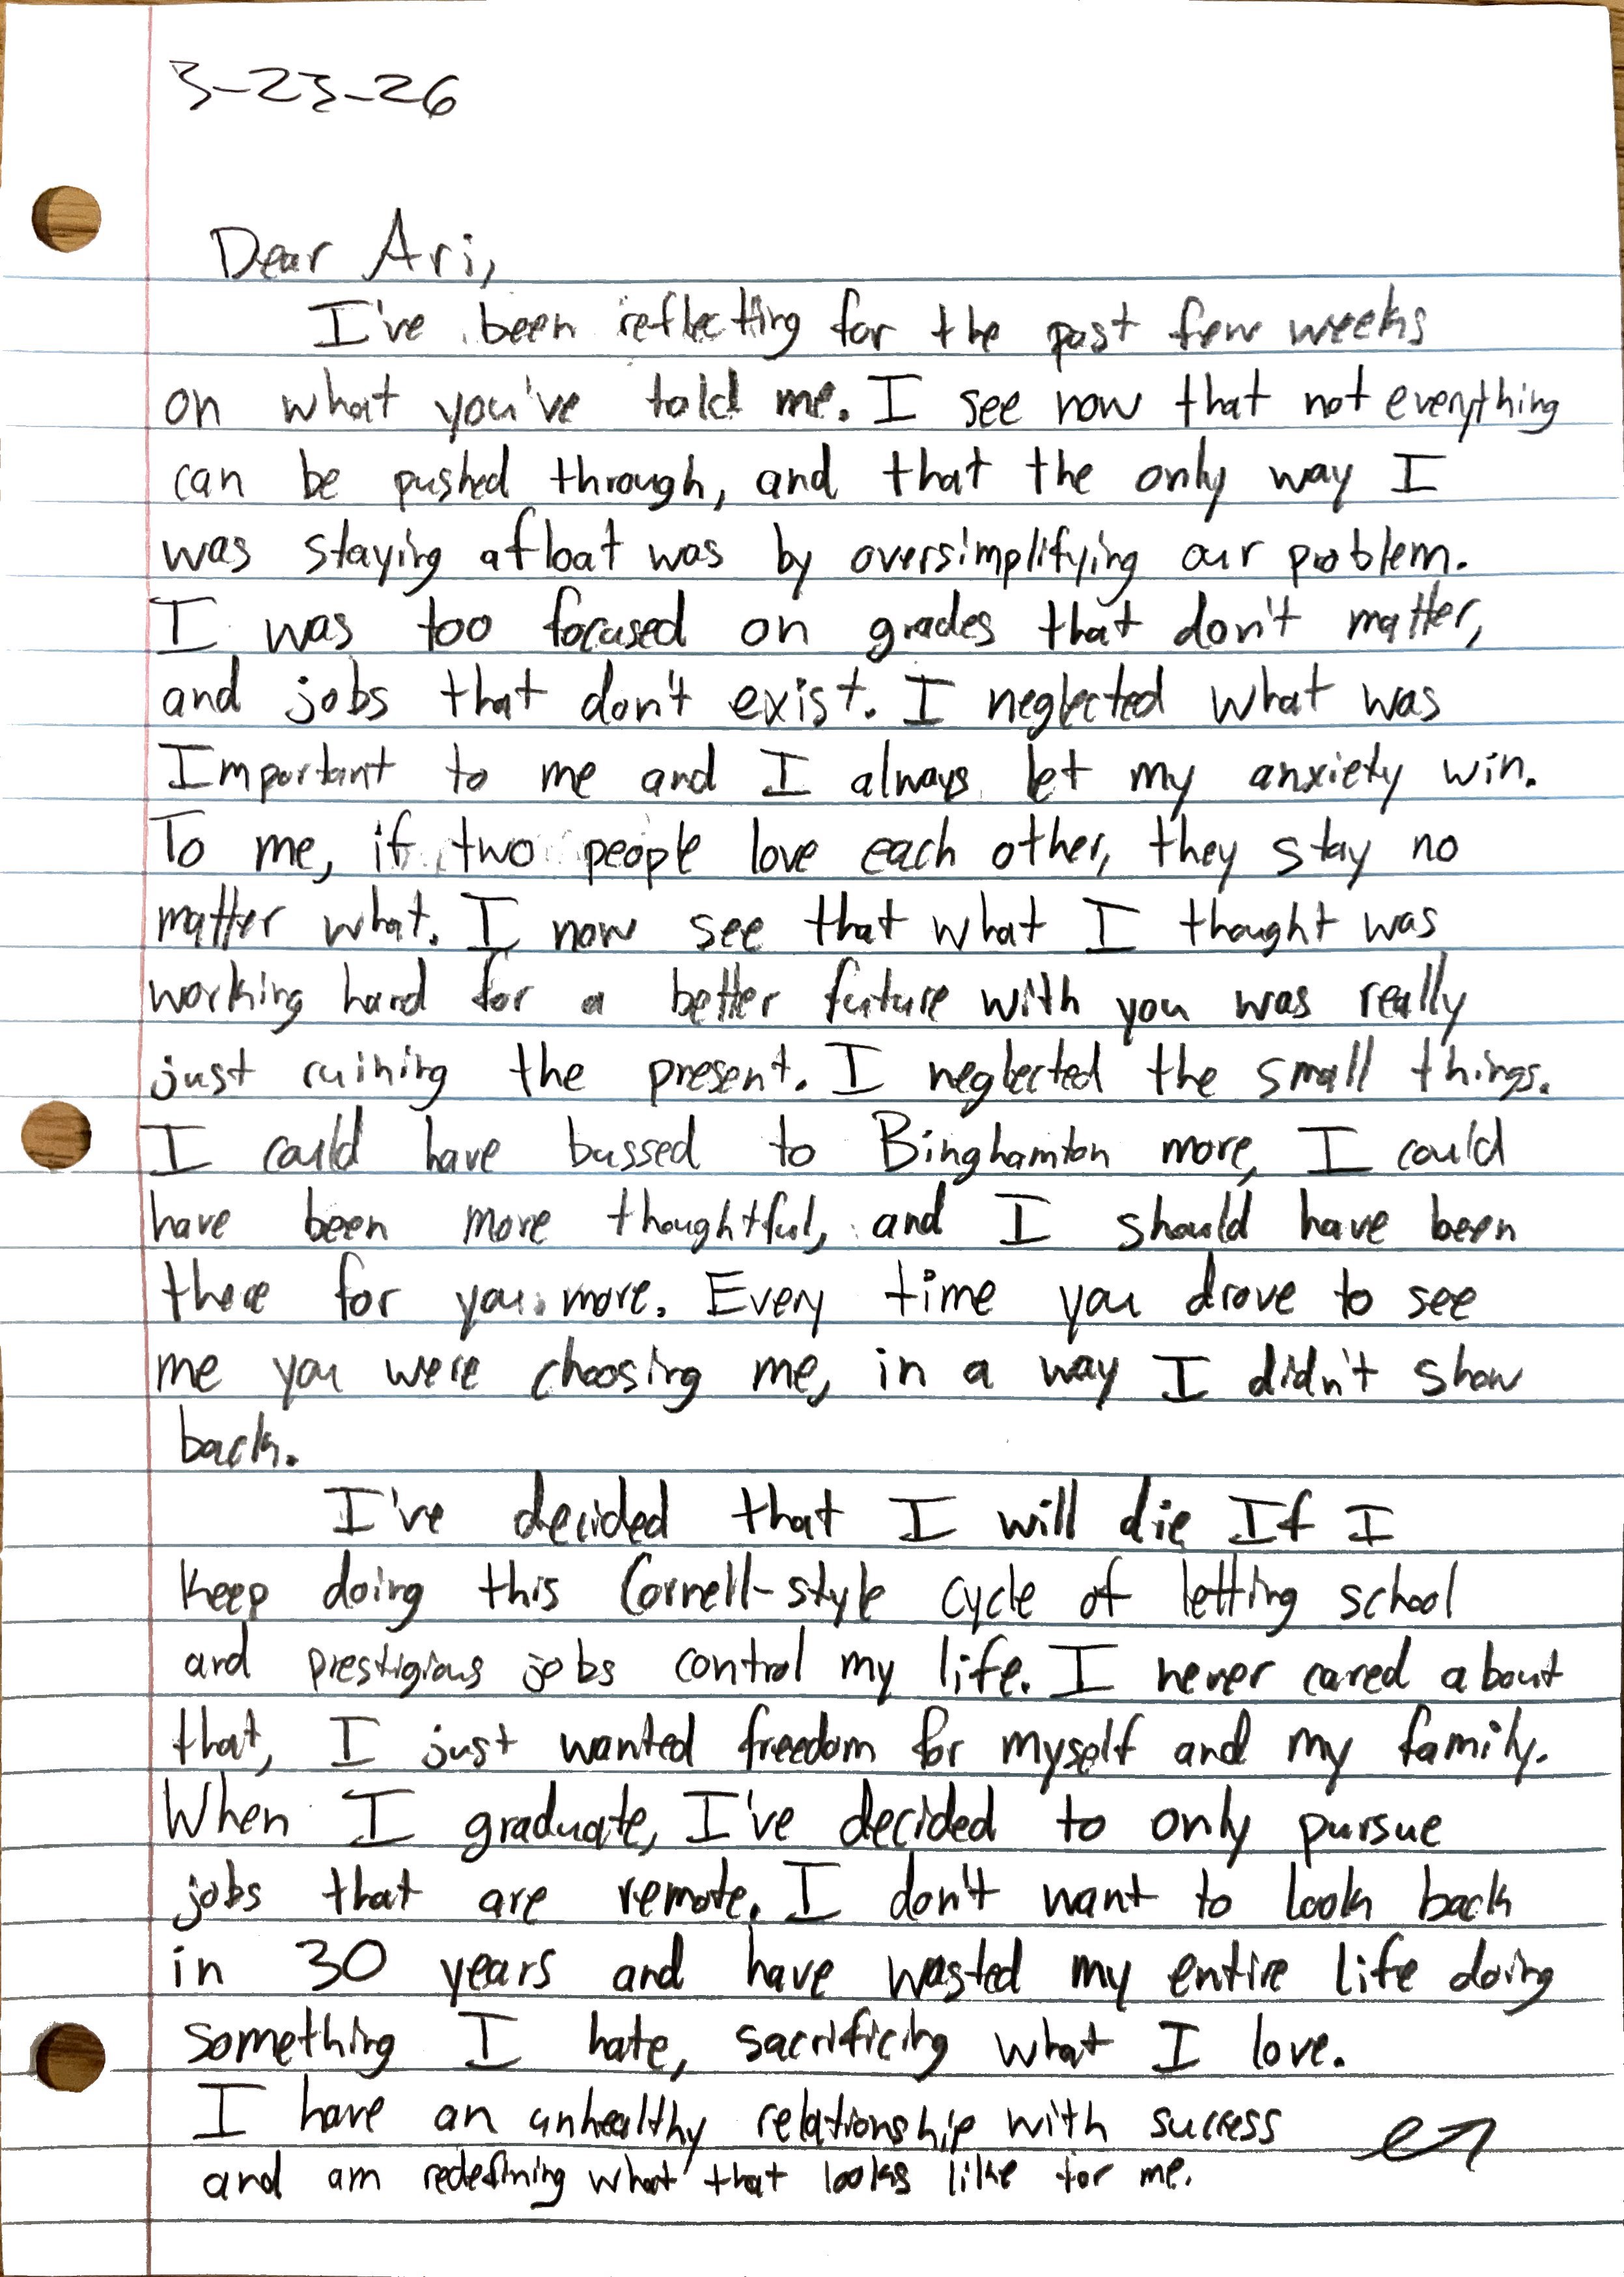 3-23-26
Dear Ari,
I've been reflecting for the past few weeks
on what you've told me. I see now that not everything
can be pushed through, and that the only way I
was staying afloat was by oversimplifying our problem.
I was too focused on grades that don't matter,
and jobs that don't exist. I neglected what was
Important to me and I always let my anxiety win.
To me, if two people love each other, they stay no
matter what. I now see that what I thought was
working hard for a better future with you was really
just ruining the present. I neglected the small things.
I could have bussed to Binghamton more, I could
have been more thoughtful, and I should have been
there for you more. Every time you drove to see
me you were choosing me, in a way I didn't show
back.
I've decided that I will die If I
keep doing this Cornell-style cycle of letting school
and prestigious jobs control my life. I never cared about
that, I just wanted freedom for myself and my family.
When I graduate, I've decided to only pursue
jobs that are remote. I don't want to look back
in 30 years and have wasted my entire life doing
something I hate, sacrificing what I love.
I have an unhealthy relationship with success
and am redefining what that looks like for me.